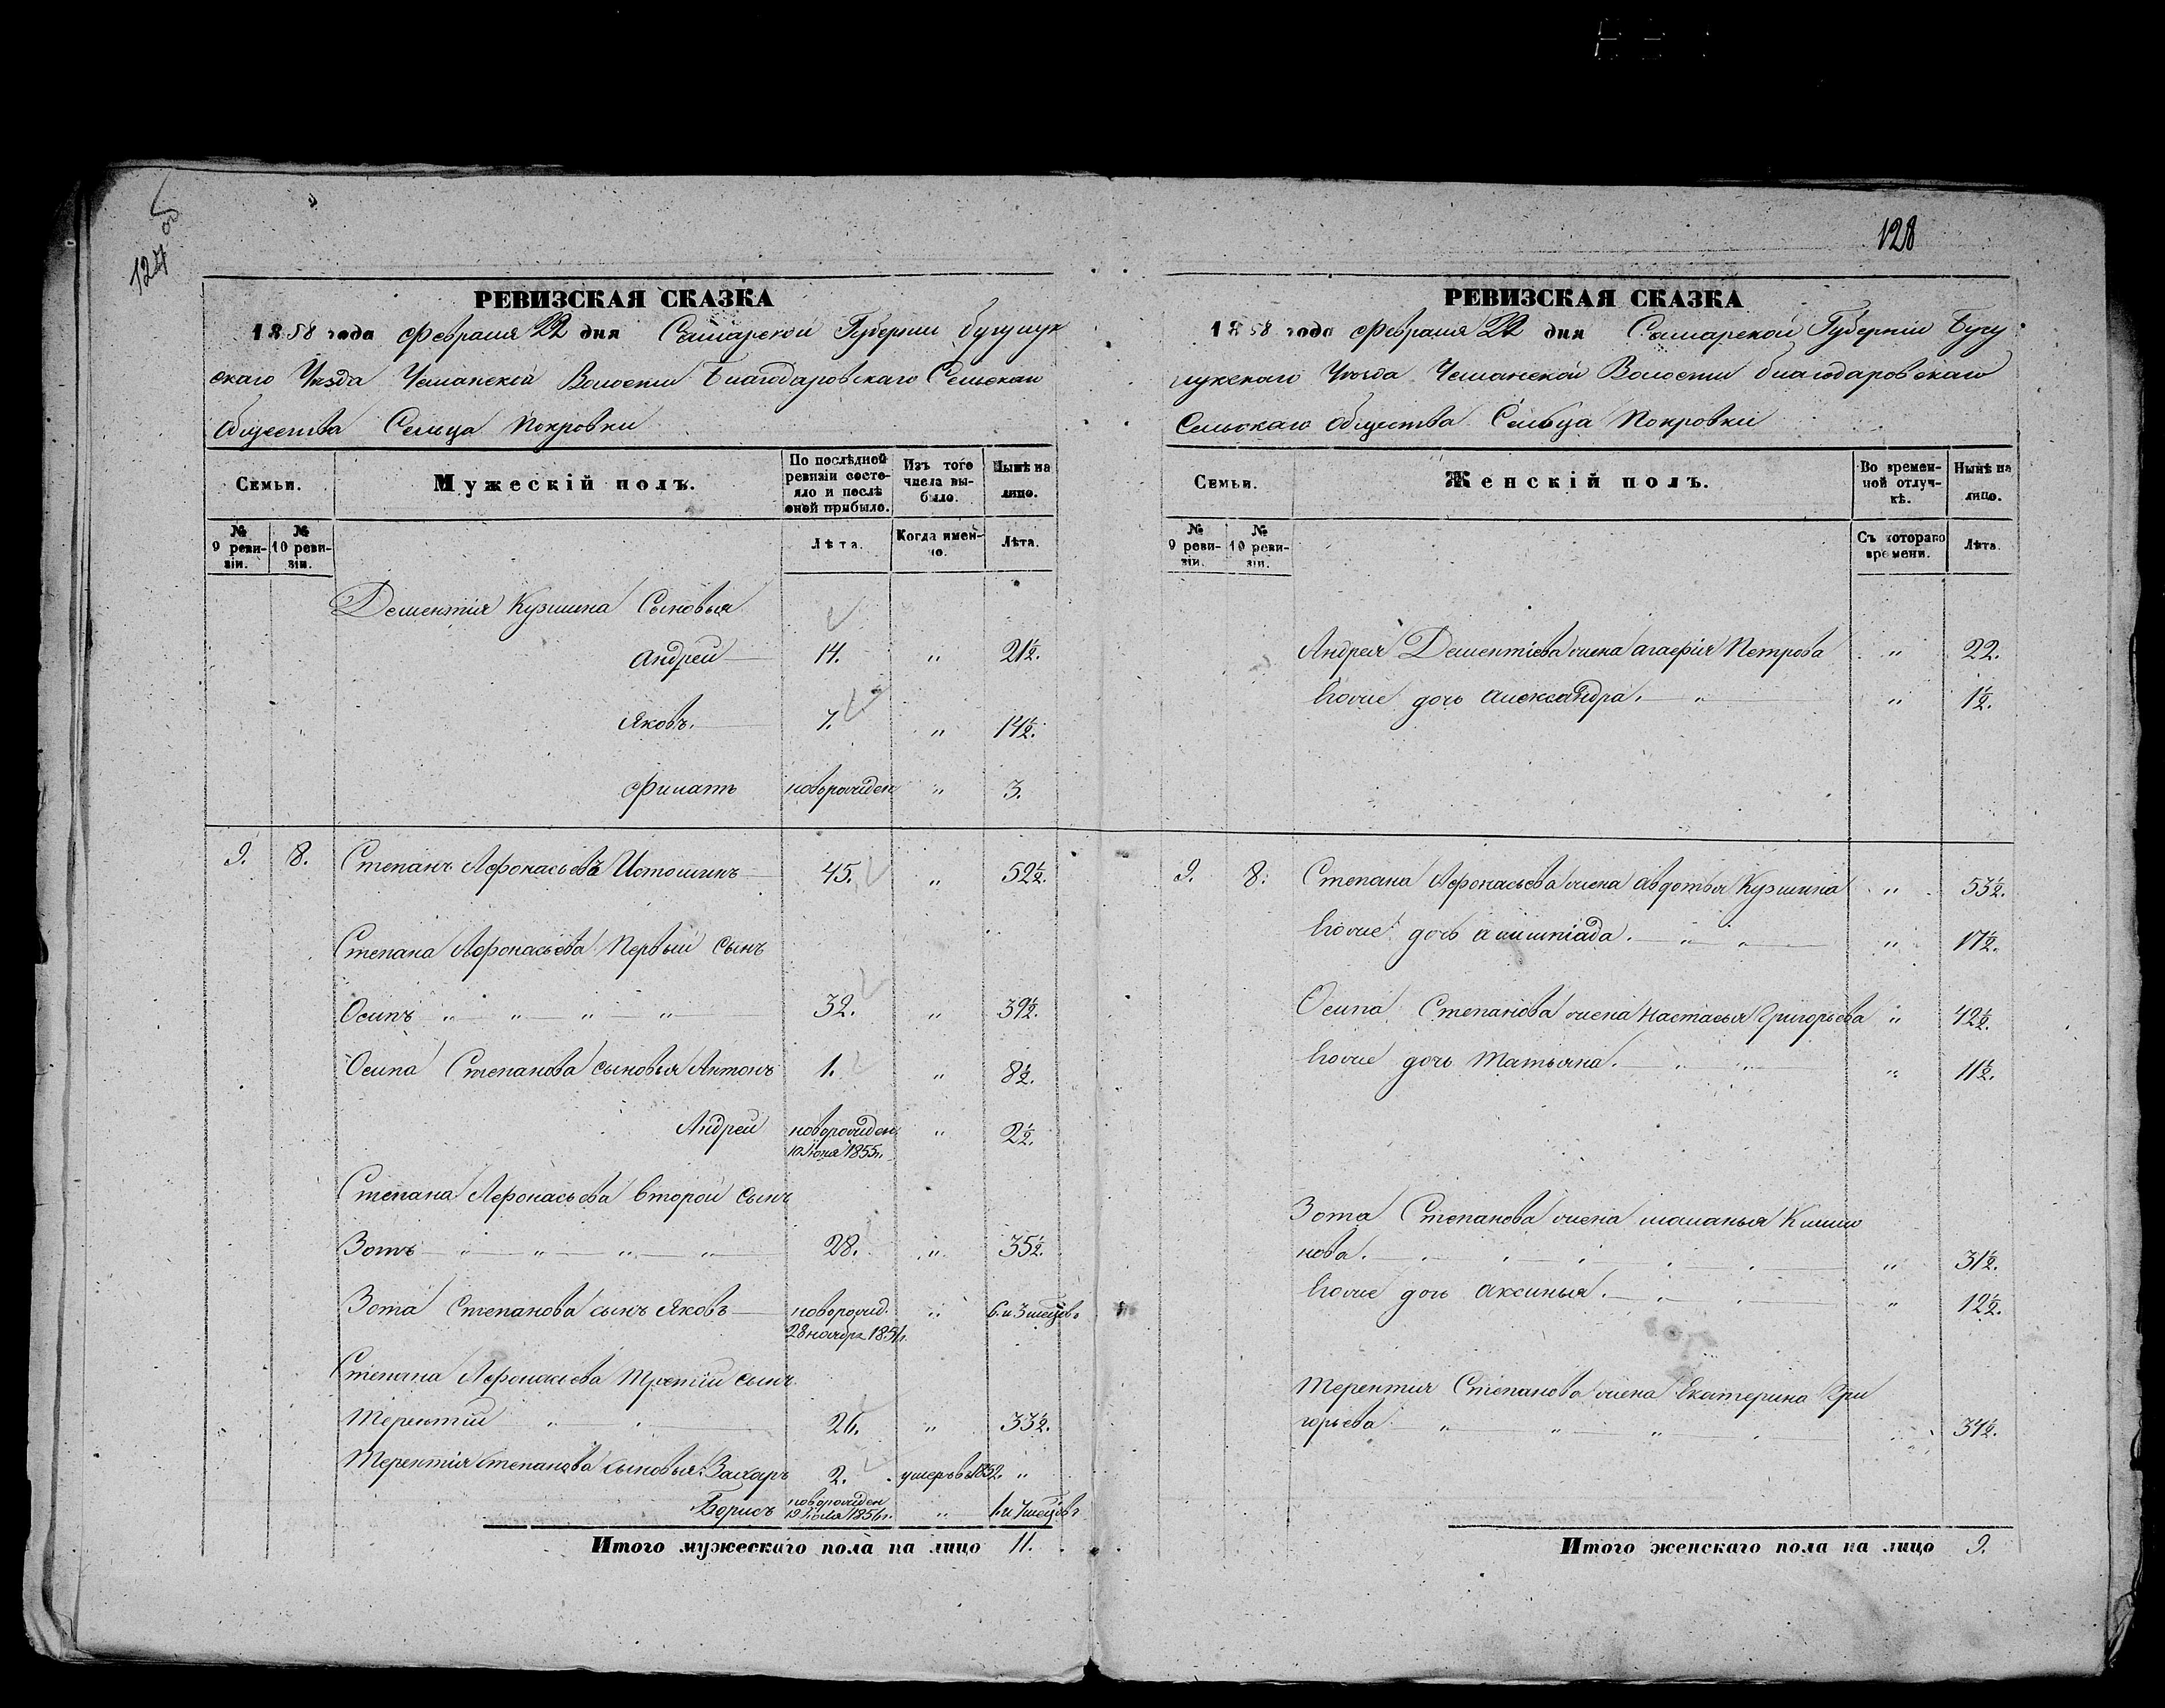 127 об
128
РЕВИЗСКАЯ СКАЗКА
1858 года Февраля 22 дня Самарской Губерніи Бугулук
скаго Уѣзда Чеманской Волости Благодаровскаго Сельскаго
Общества Сельца Покровки
Семьи.
Мужескій полъ.
По послѣдней ревизіи состояло и послѣ оной прибыло.
Изъ того числа выбыло.
Нынѣ на лицо.
№ 9 ревизіи.
№ 10 ревизіи.
Лѣта.
Когда именно.
Лѣта.
Дементія Кузмина Сыновья
Андрей 14. " 21½.
Яковъ. 7. " 14½.
Филатъ новорожден " 3.
9. 8. Степанъ Афонасьевъ Истошинъ 45. " 52½.
Степана Афонасьева Первый Сынъ
Осипъ " " " " 32. " 39½.
Осипа Степанова сыновья Антонъ 1. " 8½.
Андрей новорожден " 2½.
10 Іюня 1855 г.
Степана Афонасьева второй сынъ
Зотъ " " " " 28. " 35½.
Зота Степанова сынъ Яковъ новорожд. " 6. и 3 месецов
28 ноября 1851 г.
Степана Афонасьева Третій сынъ
Терентій " " 26. " 33½.
Терентія Степанова сыновья: Захаръ 2. умеръ въ 1852. "
Борисъ новорожден " 1. и 7 месецов
19 Іюля 1856 г.
Итого мужескаго пола на лицо 11.
РЕВИЗСКАЯ СКАЗКА
1858 года Февраля 22 дня Самарской Губерніи Бугу
лукскаго Уѣзда Чеманской Волости благодаровскаго
Сельскаго Общества Сельца Покровки
Семьи.
Женскій полъ.
Во временной отлучкѣ.
Нынѣ на лицо.
№ 9 ревизіи.
№ 10 ревизіи.
Съ котораго времени.
Лѣта.
Андрея Дементіева жена агафія Петрова " 22.
Евоже дочь Александра. " " 1½.
9. 8. Степана Афонасьева жена авдотья Кузмина " 53½.
Евоже дочь алимпіада. " " " 17½.
Осипа Степанова жена Настасья Григорьева " 42½.
Евоже дочь Татьяна. " " " 11½.
Зота Степанова жена маланья Климо
нова. " " " " " " 31½.
Евоже дочь Аксинья. " " " " 12½.
Терентія Степанова жена Екатерина Гри
горьева " " " " " 34½.
Итого женскаго пола на лицо 9.